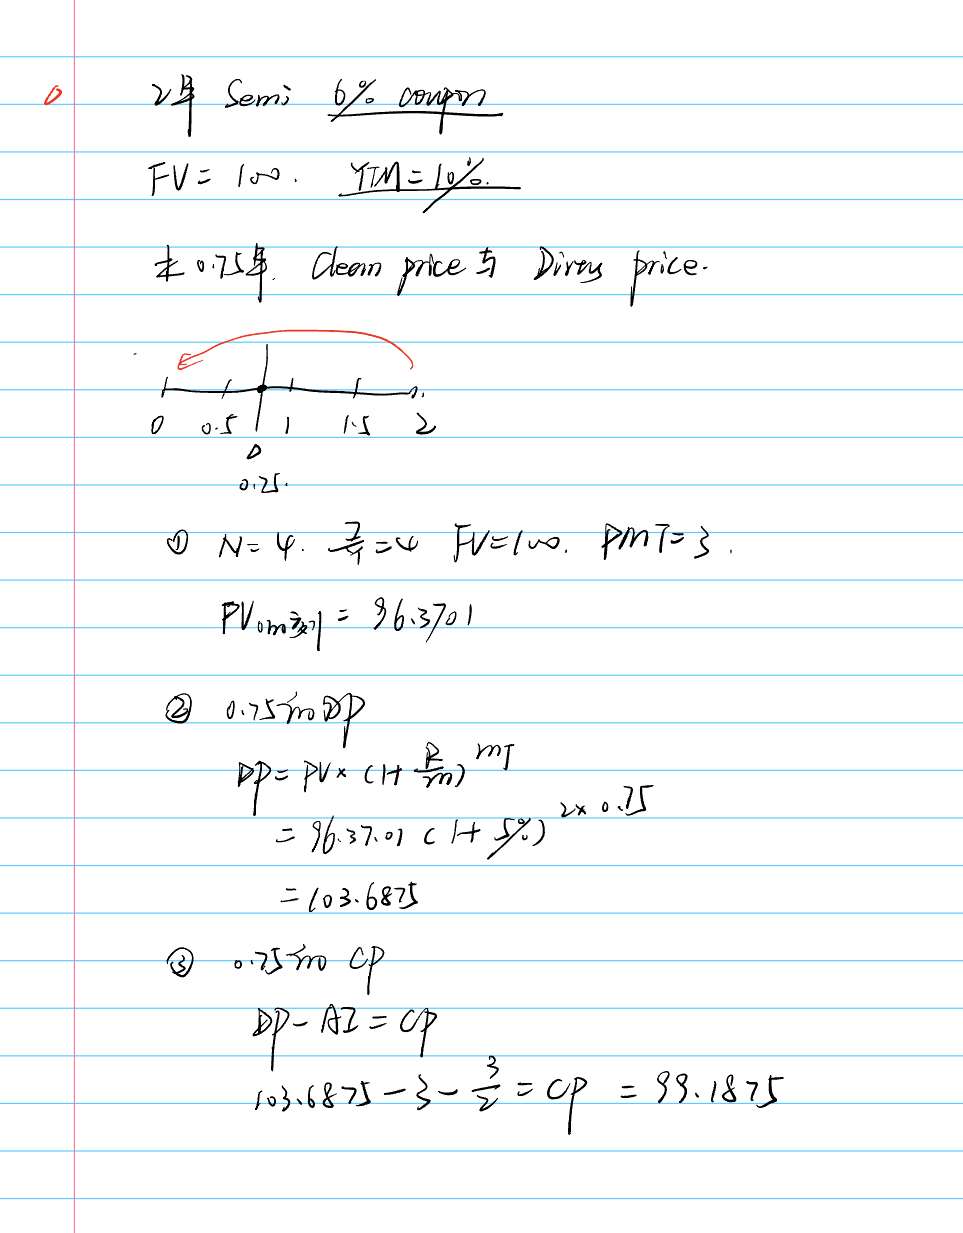 2年 Semi 6% coupon
FV = 100. YTM = 10%.
求 0.75年. Clean price 与 Dirty price.
0 0.5 1 1.5 2
0.25.
① N = 4. = 4 FV = 100. PMT = 3.
PV 0时刻 = 96.3701
② 0.75 DP
DP = PV × (1 + R/m)^mT
= 96.37.01 (1 + 5%)^2×0.75
= 103.6875
③ 0.75 CP
DP - AI = CP
103.6875 - 3 - 3/2 = CP = 99.1875